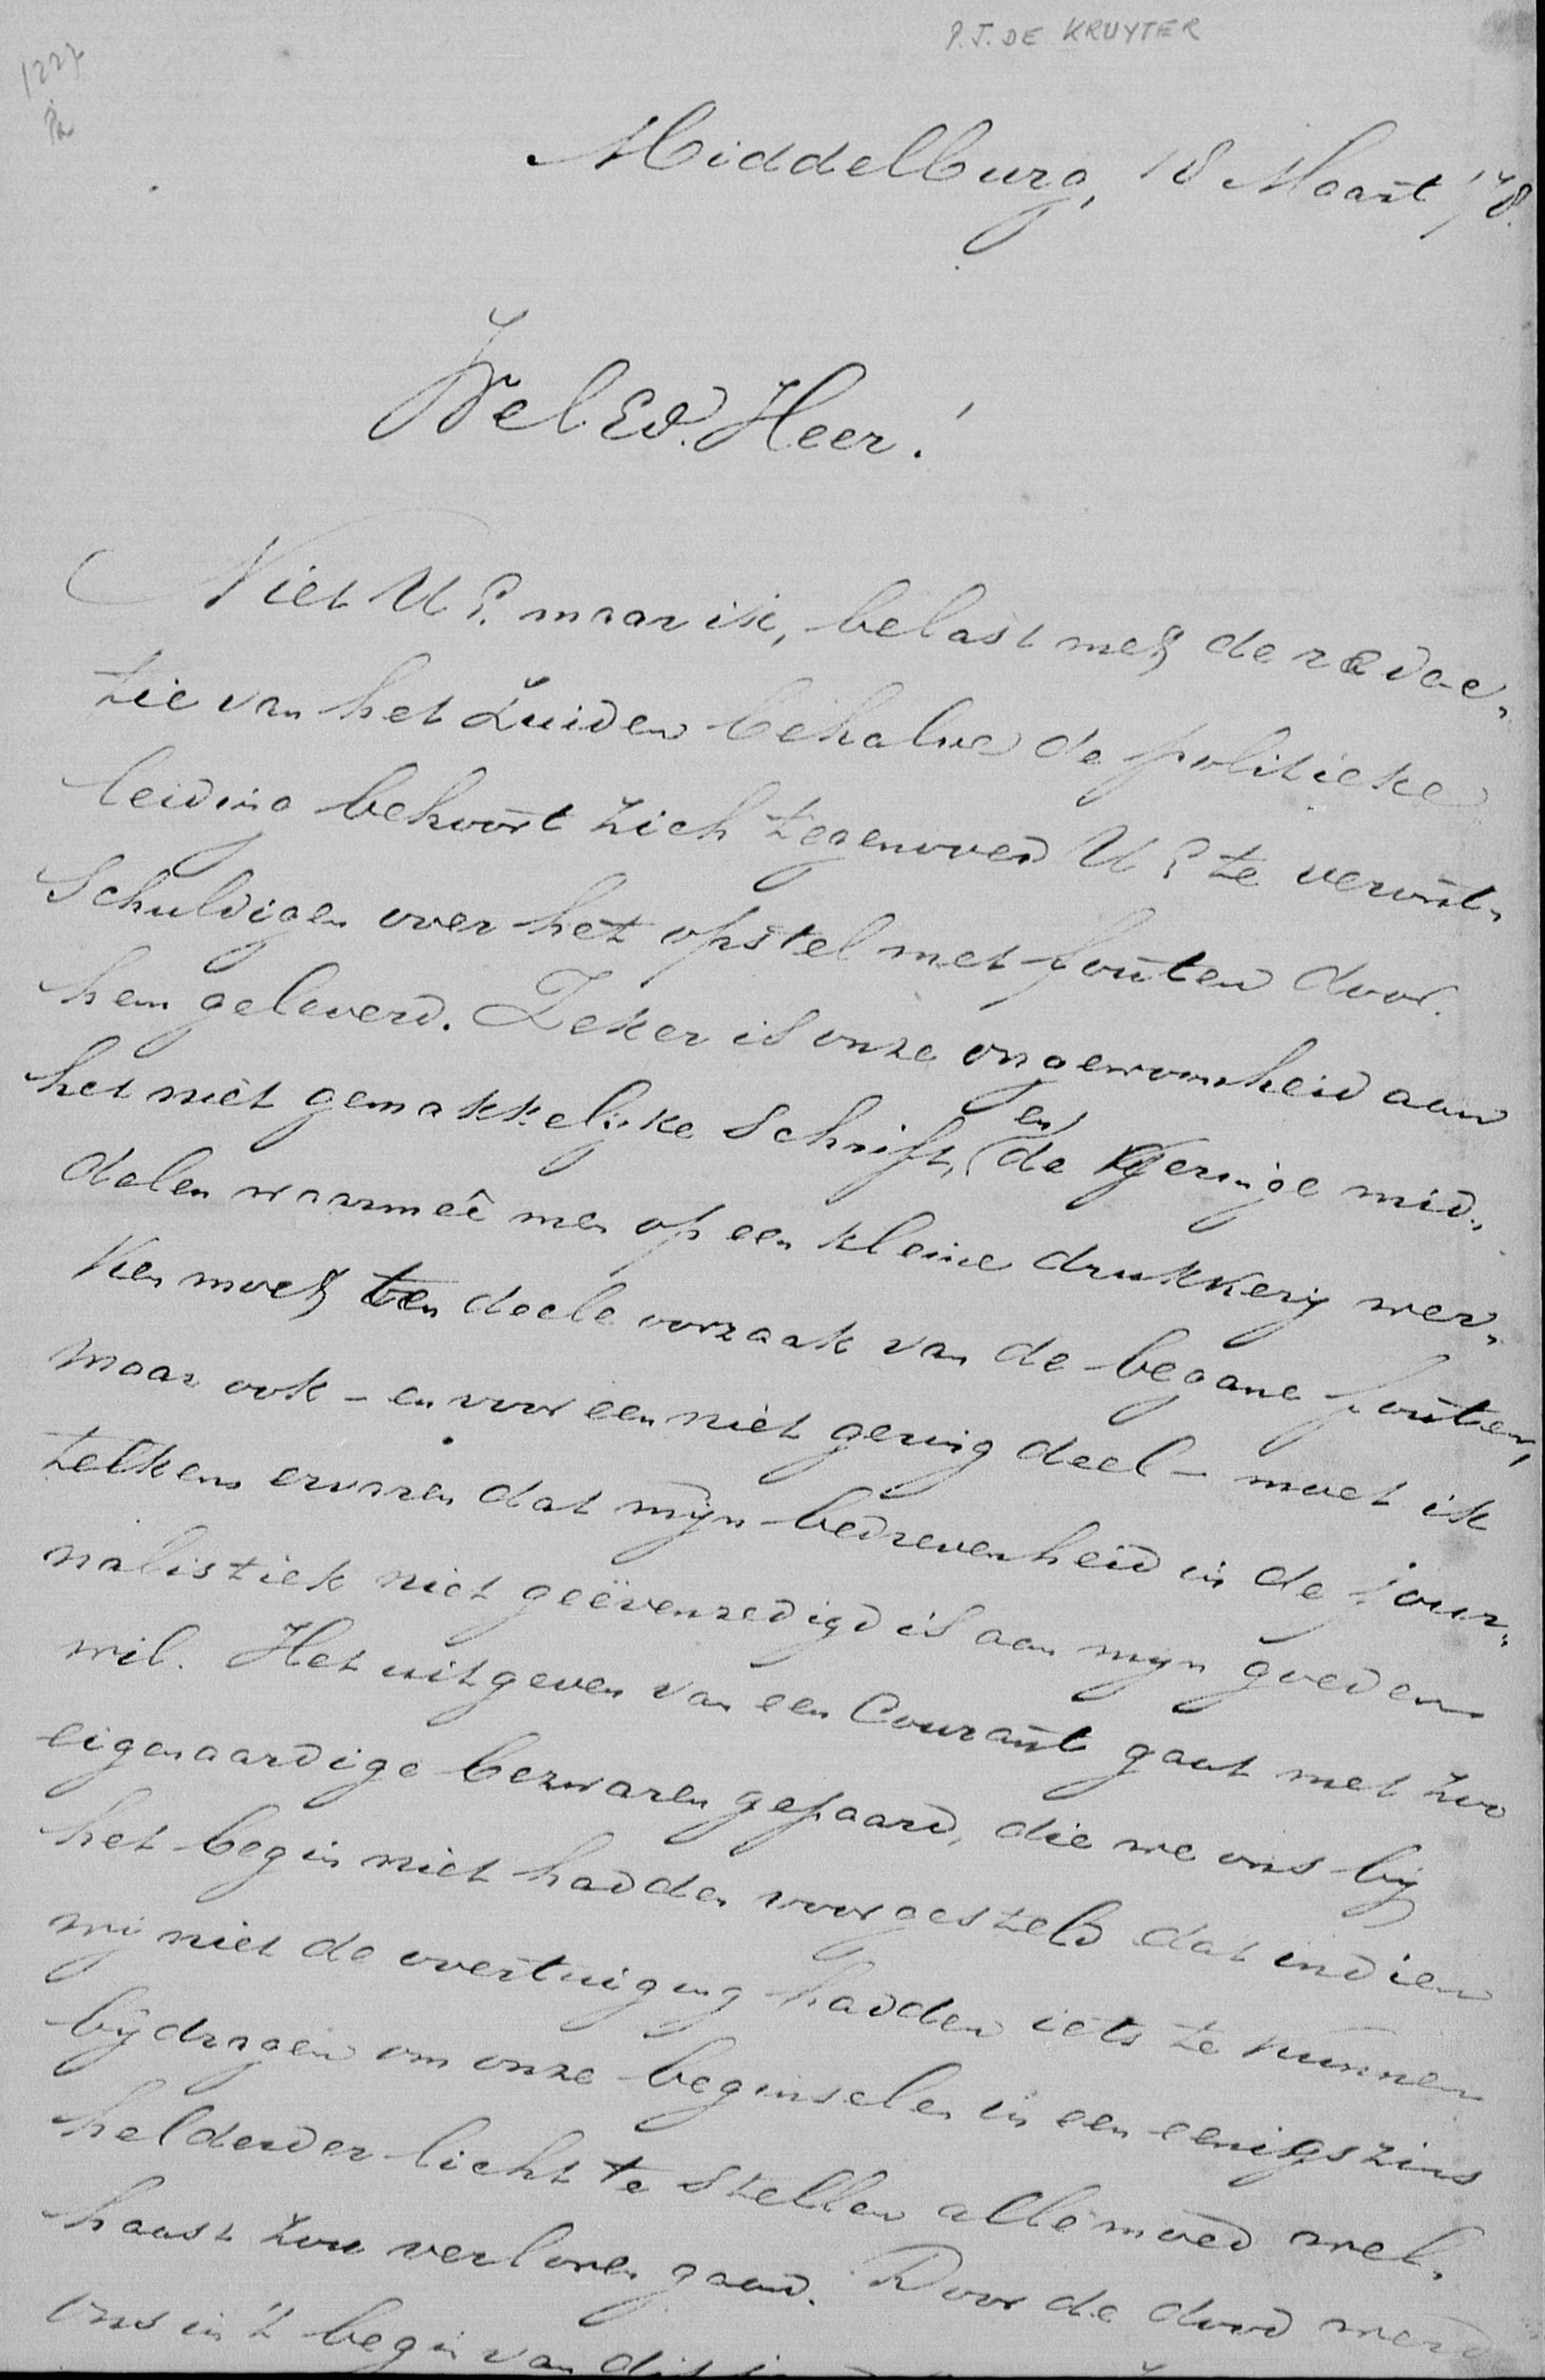 P.J. DE KRUYTER
1227
Pa
Middelburg, 18 Maart '78.
Wel.Ed. Heer!
Niet UE. maar ik, belast met de redac„
tie van het Zuiden behalve de politieke
leiding behoort zich tegenover UE te veront„
schuldigen over het opstel met fouten door
hem geleverd. Zeker is onze ongewoonheid aan
het niet gemakkelijke schrift, en de geringe mid„
delen waarmeê men op een kleine drukkerij wer„
ken moet ten deele oorzaak van de begane fouten,
maar ook – en voor een niet gering deel – moet ik
telkens ervaren dat mijn bedrevenheid in de jour„
nalistiek niet geëvenredigd is aan mijn goeden
wil. Het uitgeven van een Courant gaat met zoo
eigenaardige bezwaren gepaard, die we ons bij
het begin niet hadden voorgesteld dat indien
wij niet de overtuiging hadden iets te kunnen
bijdragen om onze beginselen in een eenigszins
helderder licht te stellen alle moed wel„
haast zou verloren gaan. Door de dood werd
ons in 't begin van dit